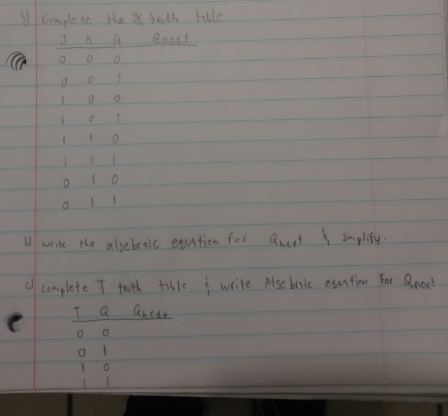 3) Complete the JK truth table
J K Q Qnext
0 0 0
0 0 1
1 0 0
1 0 1
1 1 0
1 1 1
0 1 0
0 1 1
b) write the algebraic equation for Qnext & simplify.
c) complete T truth table & write Algebraic equation for Qnext
T Q Qnext
0 0
0 1
1 0
1 1